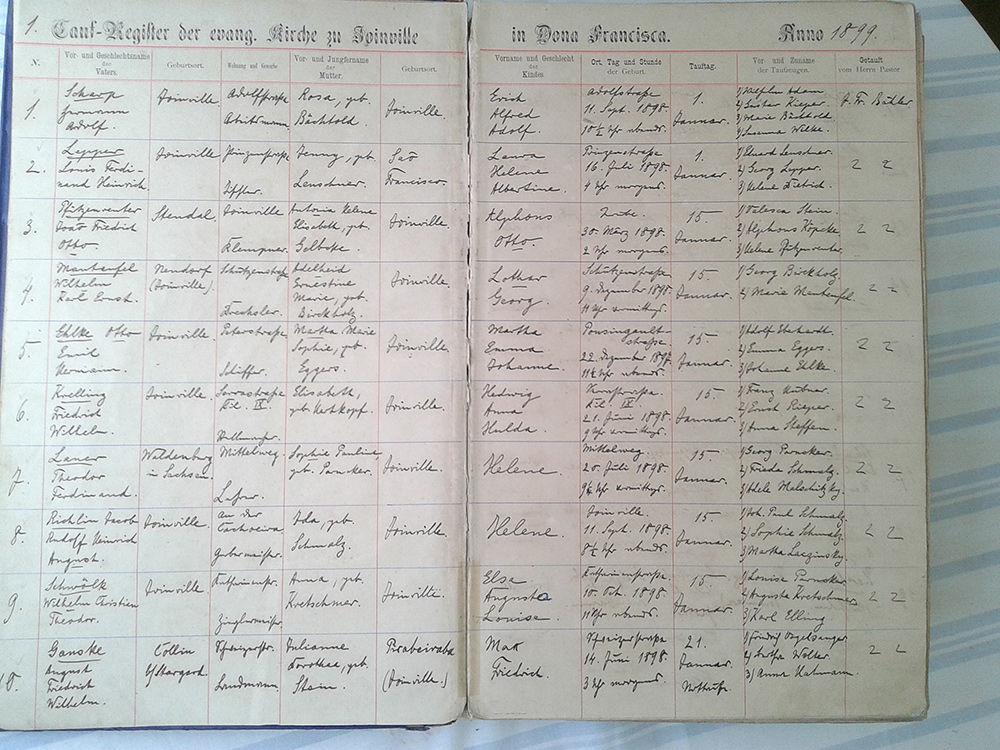 1. Tauf-Register der evang. Kirche zu Joinville in Dona Francisca. Anno 1899.
N. Vor- und Geschlechtsname des Vaters. Geburtsort. Wohnung und Gewerbe Vor- und Jungfername der Mutter. Geburtsort. Vorname und Geschlecht des Kindes. Ort, Tag und Stunde der Geburt. Tauftag. Vor- und Zuname der Taufzeugen. Getauft vom Herrn Pastor
1. Scharp Joinville Adolfstraße Rosa, geb. Joinville. Erich Adolfstraße 1. 1) Wilhelm Adam Bühler
Hermann Bächtold. Alfred 11. Sept. 1898. Januar. 2) Gustav Rieper
Adolf. Adolf. 10½ Uhr abends. 3) Marie Bächtold
4) Wilke.
2. Lepper Joinville Prinzenstraße Jenny, geb. Saõ Laura Prinzenstraße 1. 1) Eduard Lenschner.
Louis Ferdi- Lenschner. Francisco. Helene 16. Juli 1898. Januar. 2) Georg Lepper.
nand Heinrich Albertine. 4 Uhr morgens. 3) Helene Dietrich.
3. Pfützenreuter Stendal. Joinville Antonia Helene Joinville. Alphons 15. 1) Valesca Stein.
Friedrich Klempner. Elisabeth, geb. Otto. 30. März 1898. Januar. 2) Alphons Köpcke
Otto. 2 Uhr morgens. 3) Helene Pfützenreuter.
4. Manteufel Neudorf Schützenstraße Adelheid Joinville. Lothar Schützenstraße 15. 1) Georg Birckholz
Wilhelm (Joinville). Drechsler. Ernestine Georg. 9. Dezember 1898. Januar. 2) Marie Manteufel.
Karl Ernst. Marie, geb. 11 Uhr vormittgs.
Birckholz.
5. Ehlke Otto Joinville. Peterstraße Martha Marie Joinville. Martha 15. 1) Adolf Ehrhardt.
Emil Schiffer. Sophie, geb. Emma straße 2) Emma Eggers.
Hermann. Eggers. Johanne. 22. Dezember Januar. 3) Johanne Ehlke.
11½ Uhr abends.
6. Krelling Joinville Elisabeth, Joinville. Hedwig 15. 1) Franz
Friedrich Kil. IX. geb. Anna Kil. IX. Januar. 2) Ernst Rieper.
Wilhelm. Hulda. 21. Juni 1898. 3) Anna Steffen.
9 Uhr vormittgs.
7. Waldenburg Mittelweg Sophie Pauline Joinville. Helene Mittelweg. 15. 1) Georg Parucker.
Theodor in Sachsen. Lehrer. geb. 20. Juli 1898. Januar. 2) Frieda Schmalz.
Ferdinand. 9½ Uhr vormittgs. 3) Adele Malschitzky.
8. Richlin Jacob Joinville. An der Ada, geb. Joinville. Helene. Joinville. 15. 1) Joh. Paul Schmalz.
Rudolf Heinrich Cachoeira. Schmalz. 11. Sept. 1898. Januar. 2) Sophie Schmalz.
August. Gerbermeister. 8½ Uhr abends. 3) Martha
9. Schwölk Joinville Katharinenstr. Anna, geb. Joinville. Elsa Katharinenstraße 15. 1) Louise Parucker
Wilhelm Christian Kretschmer. Auguste 10. Oct. 1898. Januar. 2) Auguste Kretschmer
Theodor. Zieglermeister. Louise. 11 Uhr abends. 3) Karl Elling
10. Ganske Collin Julianne Pirabeiraba Max 21. 1) Friedrich Vogelsanger
August b/Stargard. Landmann. Dorothee, geb. (Joinville.) Friedrich. 14. Juni 1898. Januar. 2) Wolter
Friedrich Stein. 3 Uhr morgens. Nottaufe. 3) Anna
Wilhelm.